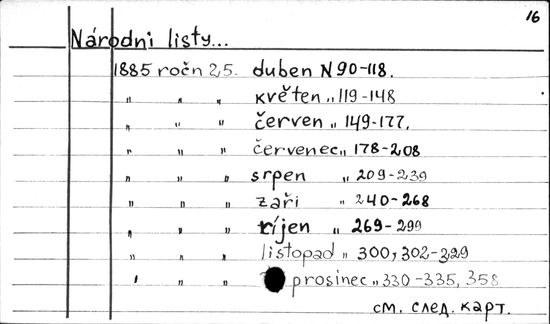 16
Národni listy...
1885 ročn 25. duben N 90-118.
" " " květen " 119-148
" " " červen " 149-177.
" " " červenec " 178-208
" " " srpen " 209-239
" " " zaři " 240-268
" " " říjen " 269-299
" " " listopad " 300, 302-329
" " " prosinec " 330-335, 358
см. след. карт.